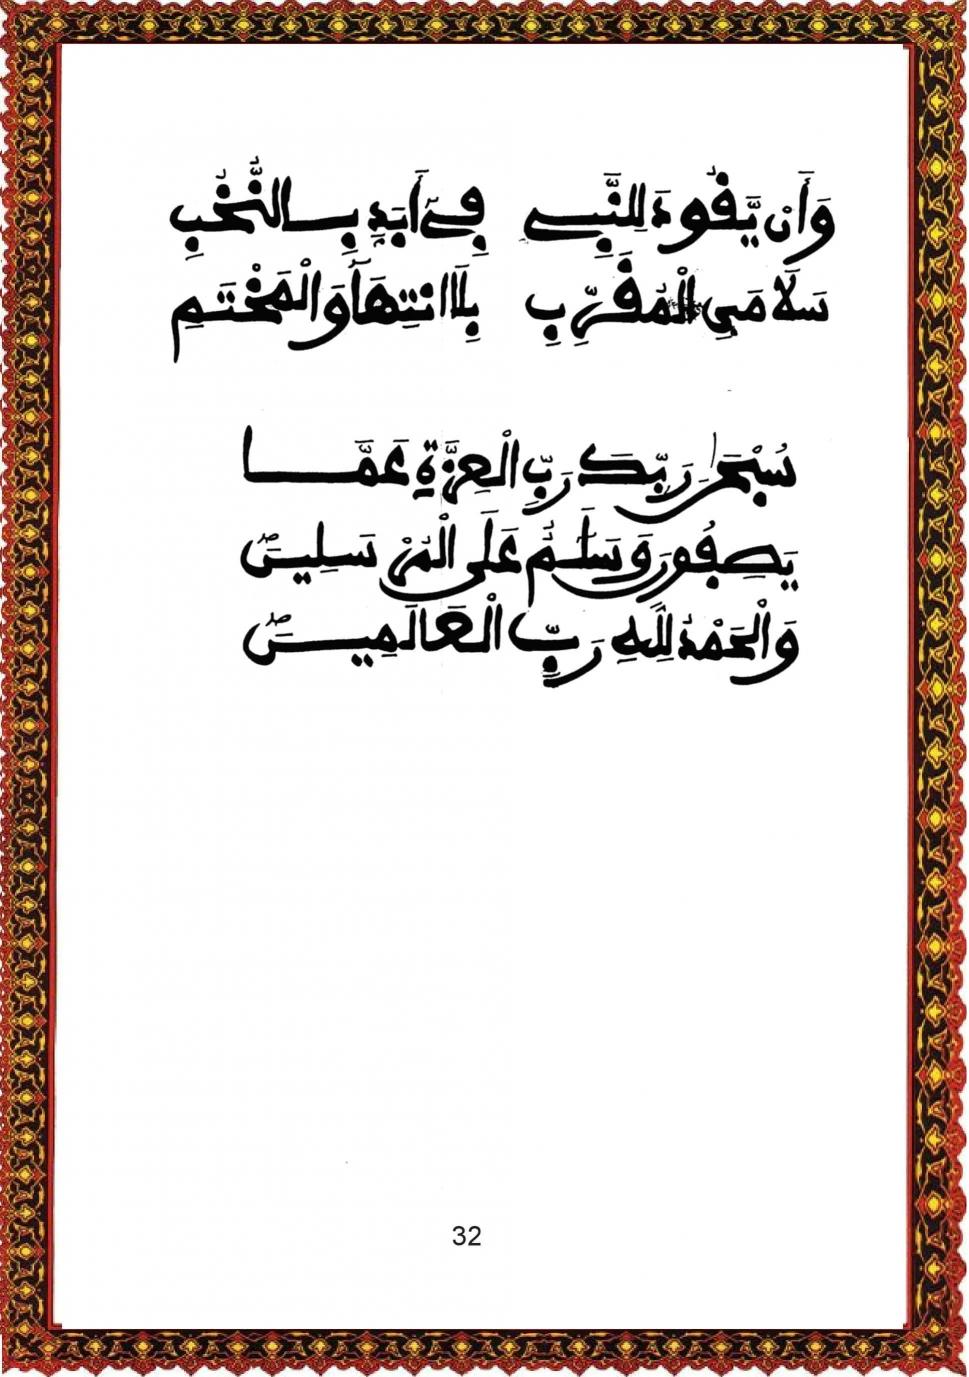 وَأَنْ يَّقُودَ لِلنَّبِي فِي أَبَدٍ بِالنُّخَبِ
سَلَامَيِ الْمُقَرِّبِ بِلَا انْتِهَا وَالْمَخْتَمِ
سُبْحَٰنَ رَبِّكَ رَبِّ الْعِزَّةِ عَمَّا
يَصِفُونَ وَسَلَٰمٌ عَلَى الْمُرْسَلِينَ
وَالْحَمْدُ لِلَّهِ رَبِّ الْعَالَمِينَ
32